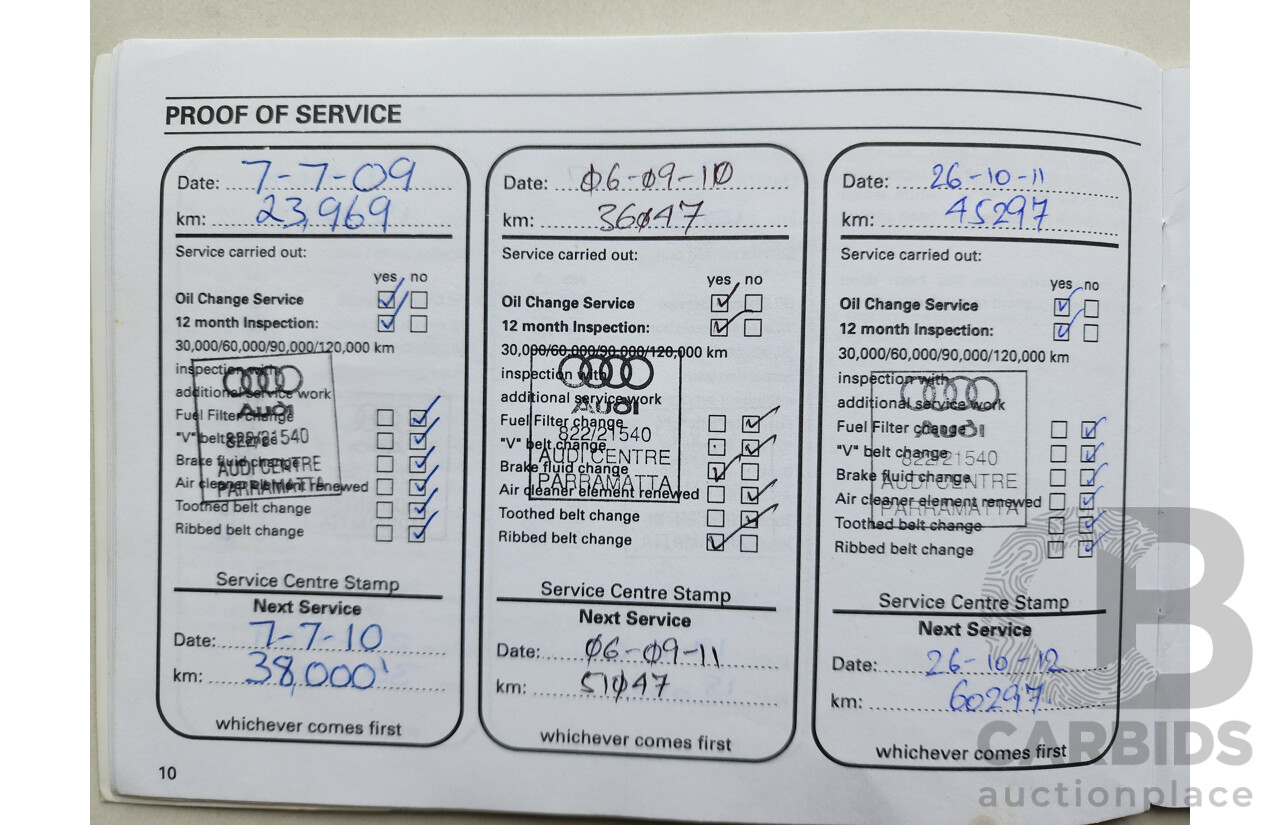 PROOF OF SERVICE
Date: 7-7-09
km: 23,969
Service carried out:
yes no
Oil Change Service
12 month Inspection:
30,000/60,000/90,000/120,000 km
inspection with
additional service work
Fuel Filter change
"V" belt change
Brake fluid change
Air cleaner element renewed
Toothed belt change
Ribbed belt change
Audi
822/21540
AUDI CENTRE
PARRAMATTA
Service Centre Stamp
Next Service
Date: 7-7-10
km: 38,000'
whichever comes first
Date: 06-09-10
km: 36047
Service carried out:
yes no
Oil Change Service
12 month Inspection:
30,000/60,000/90,000/120,000 km
inspection with
additional service work
Fuel Filter change
"V" belt change
Brake fluid change
Air cleaner element renewed
Toothed belt change
Ribbed belt change
Audi
822/21540
AUDI CENTRE
PARRAMATTA
Service Centre Stamp
Next Service
Date: 06-09-11
km: 51047
whichever comes first
Date: 26-10-11
km: 45297
Service carried out:
yes no
Oil Change Service
12 month Inspection:
30,000/60,000/90,000/120,000 km
inspection with
additional service work
Fuel Filter change
"V" belt change
Brake fluid change
Air cleaner element renewed
Toothed belt change
Ribbed belt change
Audi
822/21540
AUDI CENTRE
PARRAMATTA
Service Centre Stamp
Next Service
Date: 26-10-12
km: 60297
whichever comes first
10
CB
CARBIDS
auctionplace